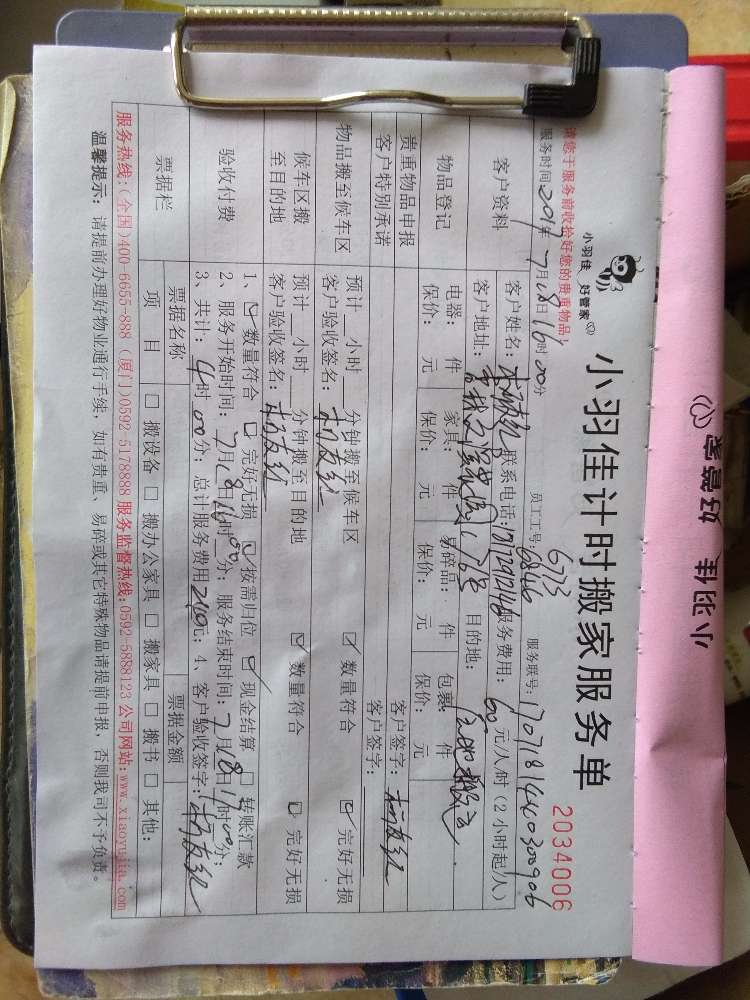 小羽佳 好管家
小羽佳计时搬家服务单
2034006
请您于服务前收拾好您的贵重物品!
员工工号: 6713 6846
服务联号: 1707181440300906
服务时间2017年7月18日16时00分
客户资料
客户姓名: 联系电话: 服务费用: 60元/人/时(2小时起/人)
客户地址: 目的地:
物品登记
电器: 件 家具: 件 易碎品: 件 包裹: 件
保价: 元 保价: 元 保价: 元 保价: 元
贵重物品申报 客户签字: 杨友红
客户特别承诺 客户签字:
物品搬至候车区
预计__小时__分钟搬至候车区 ☑ 数量符合 ☑ 完好无损
客户验收签名: 杨友红
候车区搬至目的地
预计__小时__分钟搬至目的地 ☑ 数量符合 ☑ 完好无损
客户验收签名: 杨友红
验收付费
1、☑ 数量符合 ☑ 完好无损 ☑ 按需归位 ☑ 现金结算 □ 转账汇款
2、服务开始时间: 7月18日16时00分; 服务结束时间: 7月18日17时00分;
3、共计: 4时00分; 总计服务费用240元; 4、客户验收签字: 杨友红
票据栏
票据名称 票据金额
项 目 □ 搬设备 □ 搬办公家具 □ 搬家具 □ 搬书 □ 其他:
服务热线:(全国)400-6655-888 (厦门)0592-5178888 服务监督热线:0592-5888123 公司网站:www.xiaoyujia.com
温馨提示: 请提前办理好物业通行手续, 如有贵重、易碎或其它特殊物品请提前申报, 否则我司不予负责。
小羽佳 好管家